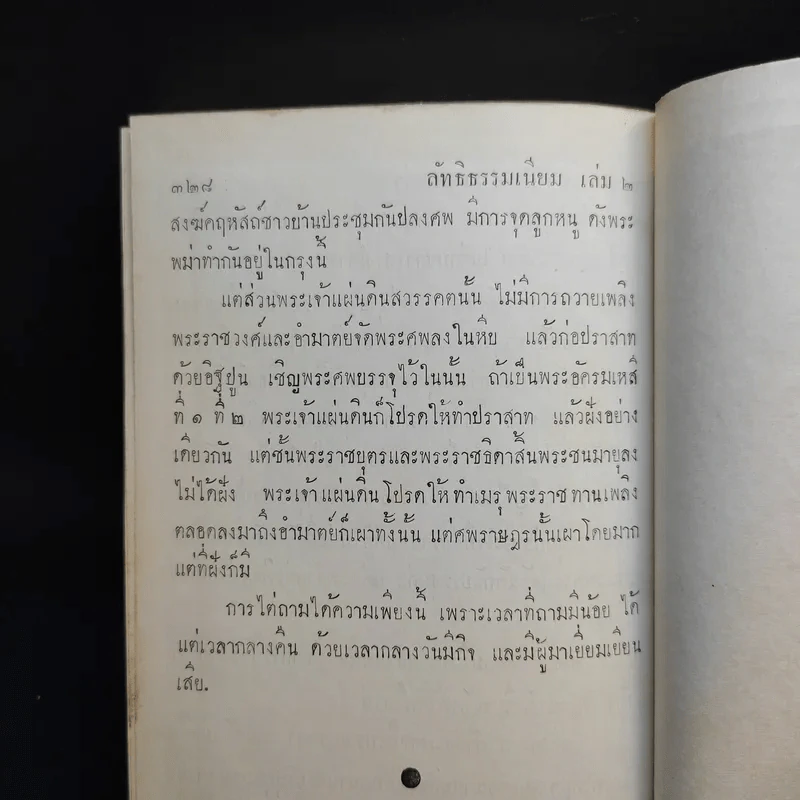 ๓๒๘ ลัทธิธรรมเนียม เล่ม ๒
สงฆ์คฤหัสถ์ชาวบ้านประชุมกันปลงศพ มีการจุดลูกหนู ดังพระ
พม่าทำกันอยู่ในกรุงนี้
แต่ส่วนพระเจ้าแผ่นดินสวรรคตนั้น ไม่มีการถวายเพลิง
พระราชวงศ์และอำมาตย์จัดพระศพลงในหีบ แล้วก่อปราสาท
ด้วยอิฐปูน เชิญพระศพบรรจุไว้ในนั้น ถ้าเป็นพระอัครมเหสี
ที่ ๑ ที่ ๒ พระเจ้าแผ่นดินก็โปรดให้ทำปราสาท แล้วฝังอย่าง
เดียวกัน แต่ชั้นพระราชบุตรและพระราชธิดาสิ้นพระชนมายุลง
ไม่ได้ฝัง พระเจ้าแผ่นดินโปรดให้ทำเมรุพระราชทานเพลิง
ตลอดลงมาถึงอำมาตย์ก็เผาทั้งนั้น แต่ศพราษฎรนั้นเผาโดยมาก
แต่ที่ฝังก็มี
การไต่ถามได้ความเพียงนี้ เพราะเวลาที่ถามมีน้อย ได้
แต่เวลากลางคืน ด้วยเวลากลางวันมีกิจ และมีผู้มาเยี่ยมเยียน
เสีย.